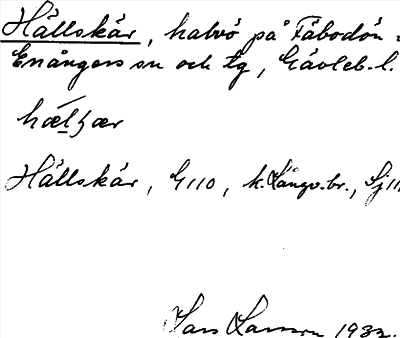 Hällskär, halvö på Fäbodön i
Enångers sn och tg, Gävleb. l.
hǽlʂær
Hällskär, G110, k. Långv.br., Sj 11
Lars Larsson 1932.